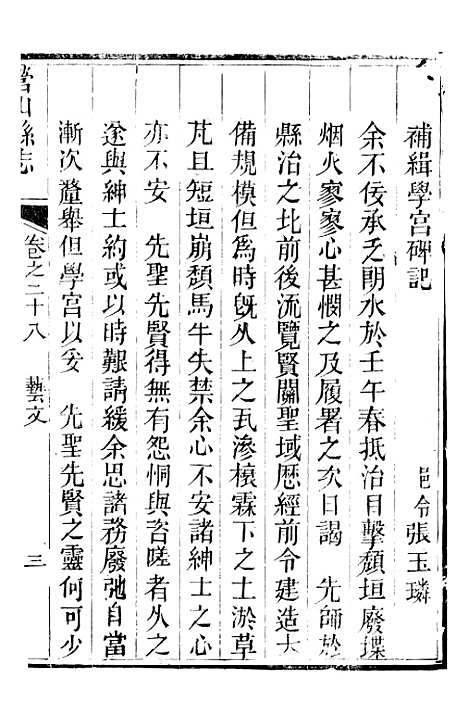 補緝學宮碑記
邑令張玉璘
余不佞承乏朗水於壬午春抵治目擊頹垣廢堞
烟火寥寥心甚憫之及履署之次日謁　先師於
縣治之北前後流覽賢關聖域歷經前令建造大
備規模但爲時旣久上之瓦滲榱霖下之土淤草
芃且短垣崩頹馬牛失禁余心不安諸紳士之心
亦不安　先聖先賢得無有怨恫與咨嗟者久之
遂與紳士約或以時艱請緩余思諸務廢弛自當
漸次釐舉但學宮以妥　先聖先賢之靈何可少
營山縣志
卷之二十八　藝文
三